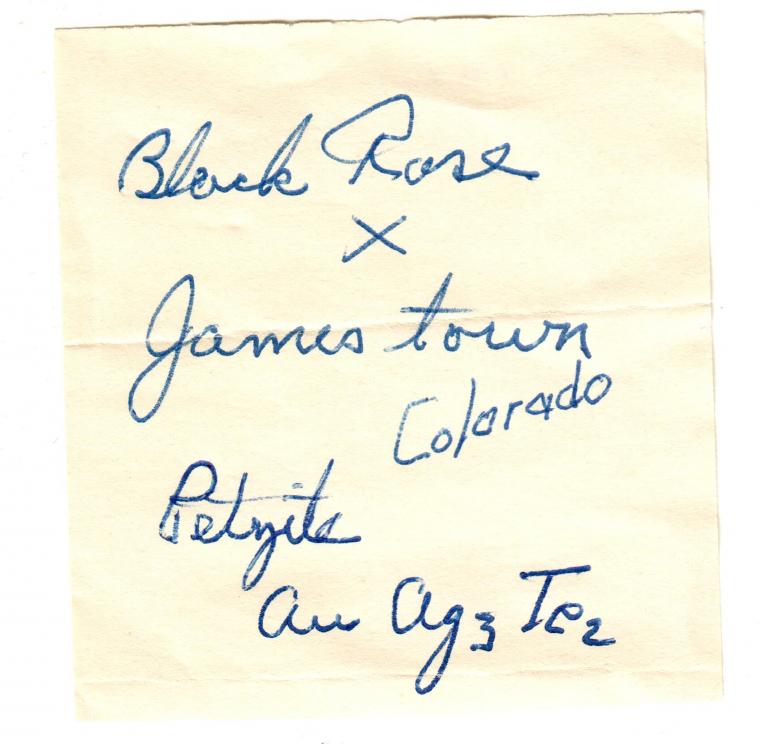 Black Rose
X
Jamestown
Colorado
Petzite
Au Ag₃ Te₂